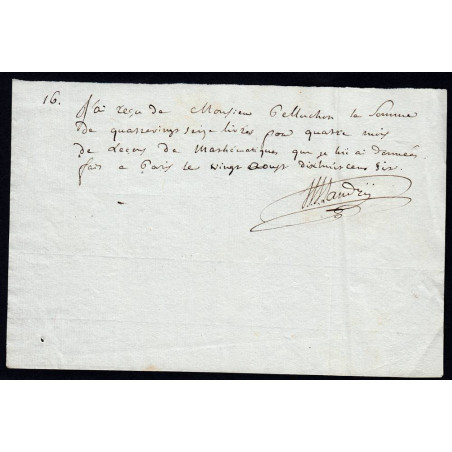 16.
J'ai reçu de Monsieur Pelluchon la Somme
de quatrevingt seize livres pour quatre mois
de Leçons de Mathématiques que je lui a données
fait a Paris le vingt Aoust dixhuit cens six.